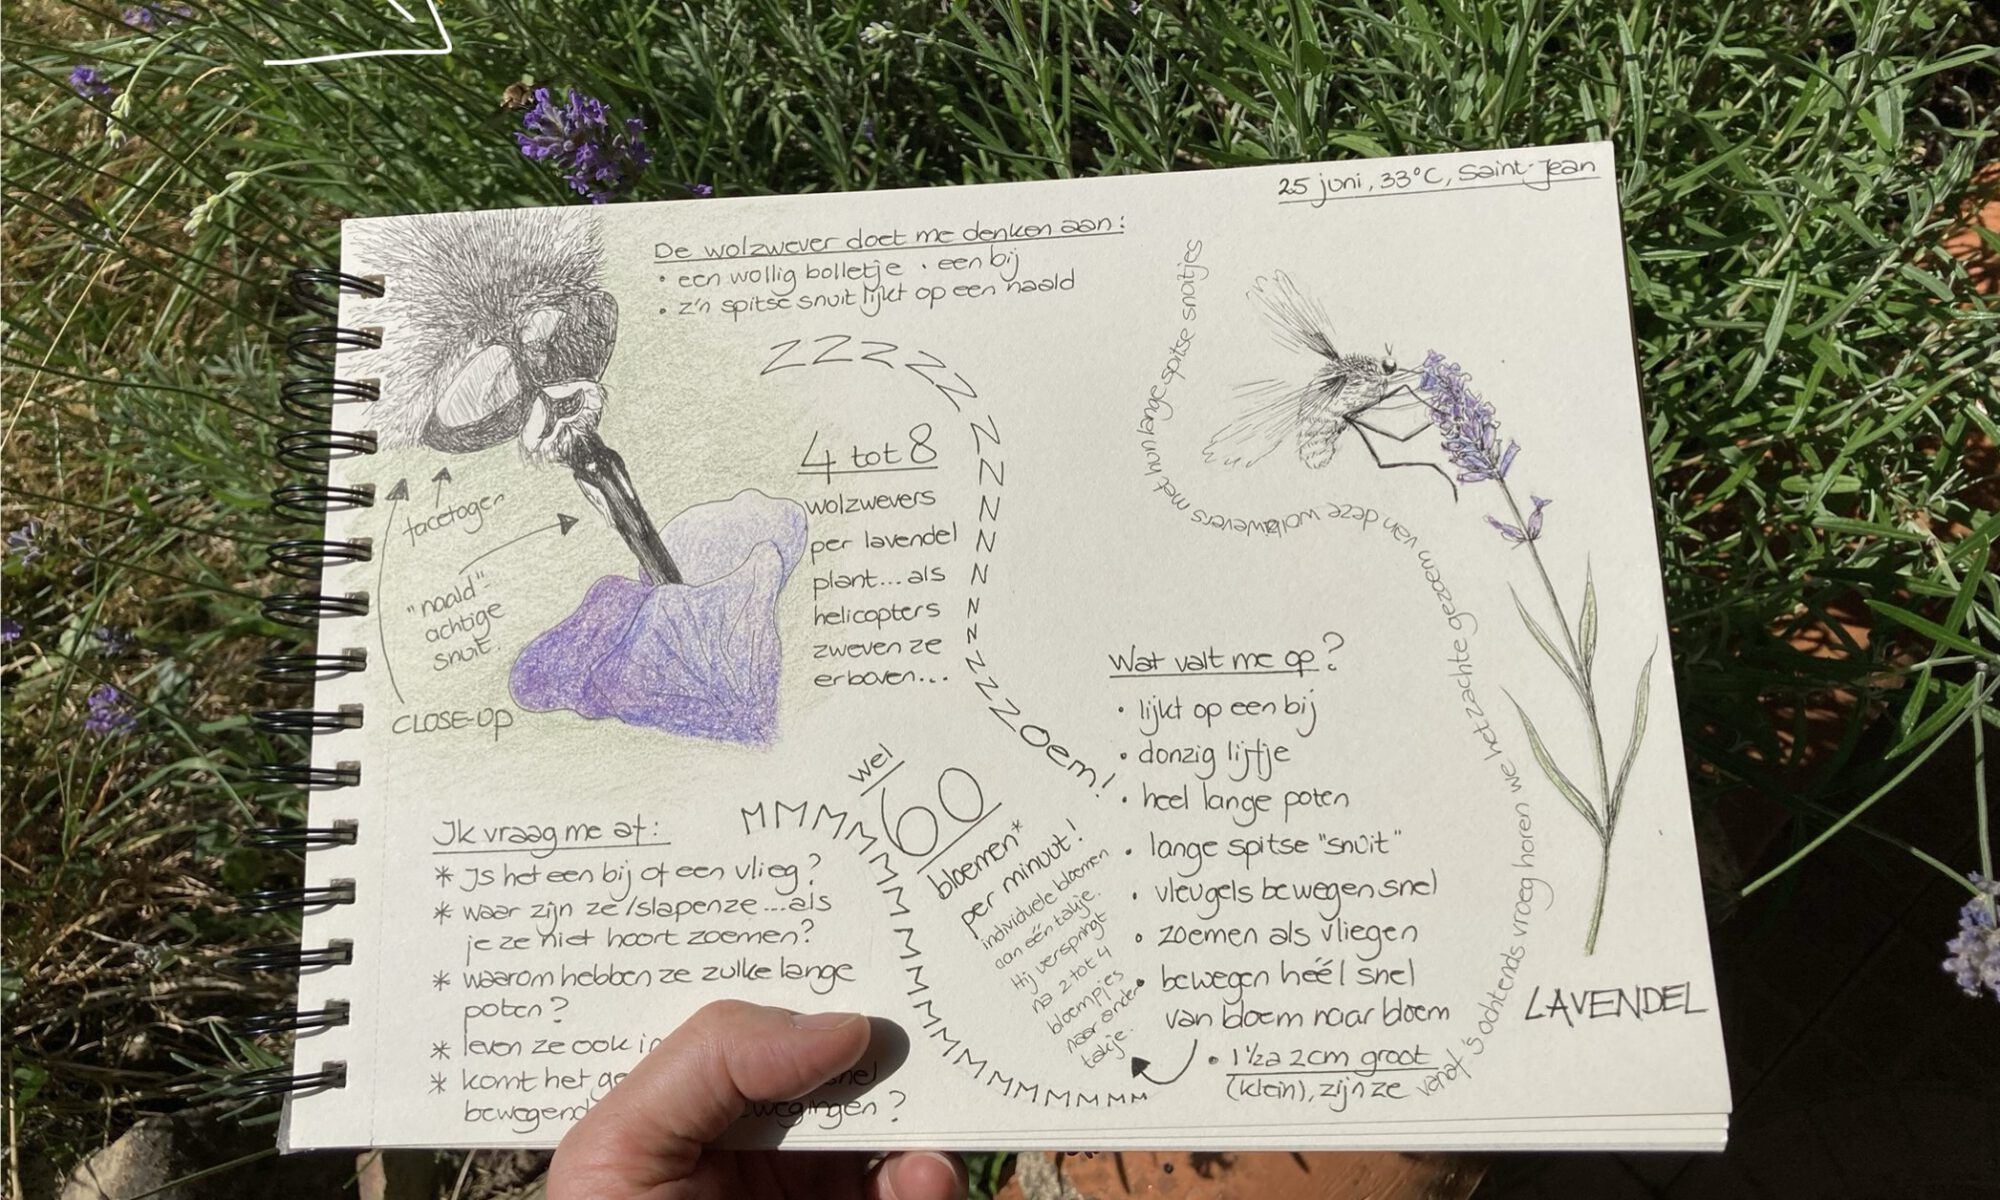 25 juni, 33°C, Saint-Jean
De wolzwever doet me denken aan:
• een wollig bolletje • een bij
• z'n spitse snuit lijkt op een naald
ZZZZZZZNNNNNNNZZZZOEM!
4 tot 8
wolzwevers
per lavendel
plant... als
helicopters
zweven ze
erboven...
facetogen
"naald"-
achtige
snuit.
CLOSE-UP
vanaf 's ochtends vroeg horen we het zachte gezoem van deze wolzwevers met hun lange spitse snuitjes
Wat valt me op?
• lijkt op een bij
• donzig lijfje
• heel lange poten
• lange spitse "snuit"
• vleugels bewegen snel
• zoemen als vliegen
• bewegen héél snel
van bloem naar bloem
• 1½ a 2cm groot
(klein), zijn ze
LAVENDEL
wel
60
bloemen*
per minuut!
individuele bloemen
aan één takje.
Hij verspringt
na 2 tot 4
bloempjes
naar ander
takje.
MMMMMMMMMMMMMMMMMMMMMM
Ik vraag me af:
* Is het een bij of een vlieg?
* waar zijn ze/slapen ze...als
je ze niet hoort zoemen?
* waarom hebben ze zulke lange
poten?
* leven ze ook
* komt het
bewegingen?